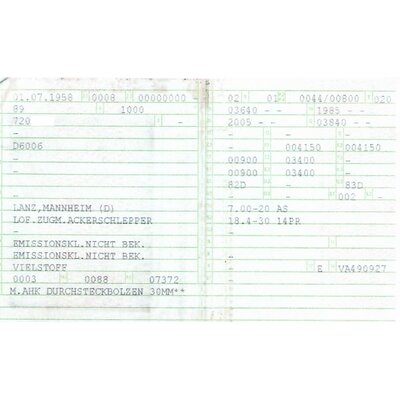 01.07.1958 0008 00000000 - 02 01 0044/00800 020
89 1000 03640 - - 1985 - -
720 - - 2005 - - 03840 - -
- - - -
D6006 - 004150 004150
- 00900 03400 -
00900 03400 -
82D - 83D
- - 002 -
LANZ,MANNHEIM (D) 7.00-20 AS
LOF.ZUGM.ACKERSCHLEPPER 18.4-30 14PR
- -
EMISSIONSKL.NICHT BEK. -
EMISSIONSKL.NICHT BEK. -
VIELSTOFF - E VA490927
0003 0088 07372
M.AHK DURCHSTECKBOLZEN 30MM**